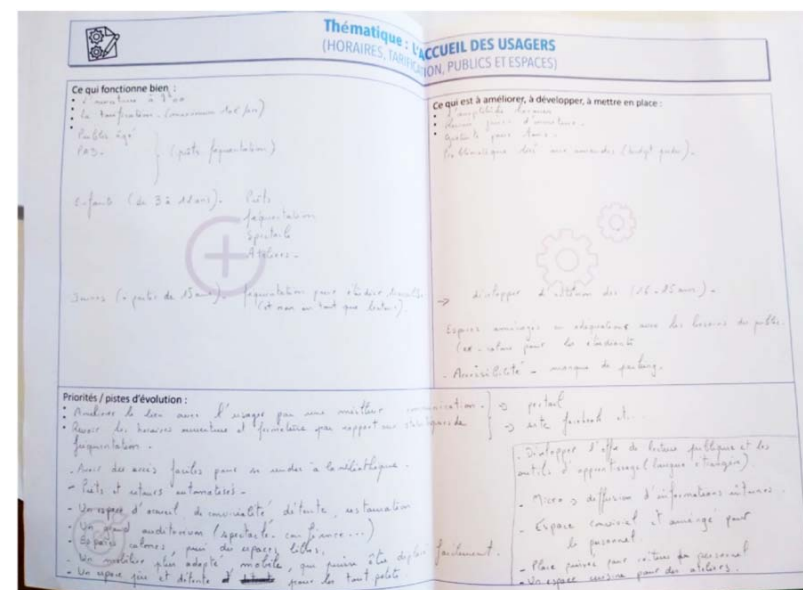 Thématique : L'ACCUEIL DES USAGERS
(HORAIRES, TARIFICATION, PUBLICS ET ESPACES)
Ce qui fonctionne bien :
à 9h00
La tarification. (maximum
Public âgé
(prêts, fréquentation)
Enfants (de 3 à 11 ans). Prêts
fréquentation
Spectacle
Ateliers -
Jeunes (à partir de 15 ans). fréquentation pour étudier, travailler
(et non en tant que lecteur)
Ce qui est à améliorer, à développer, à mettre en place :
L'amplitude horaire
jours d'ouverture.
pour tous.
Problématique liée aux amendes (budget
→ développer l'attention des
Espaces aménagés en adéquation avec les besoins du public.
pour les étudiants
- Accessibilité - manque de parking.
Priorités / pistes d'évolution :
Améliorer le lien avec l'usager par une meilleure communication. → portail
→ facebook etc...
Revoir les horaires ouverture et fermeture par rapport aux statistiques de
fréquentation.
- Avoir des accès faciles pour se rendre à la bibliothèque.
- Prêts et retours automatisés.
- Un espace d'accueil, de convivialité, détente, restauration
- Un grand auditorium (spectacle, conférence...)
- Espaces calmes, puis des espaces libres,
- Un mobilier plus adapté, mobile, qui puisse être déplacé facilement.
- Un espace jeu et détente pour les tout petits
- Développer l'offre de lecture publique et les
outils d'apprentissage (langue étrangère).
- Micro → diffusion d'informations internes.
- Espace convivial et aménagé pour
le personnel.
- Place privée pour voiture du personnel
- Un espace cuisine pour des ateliers.